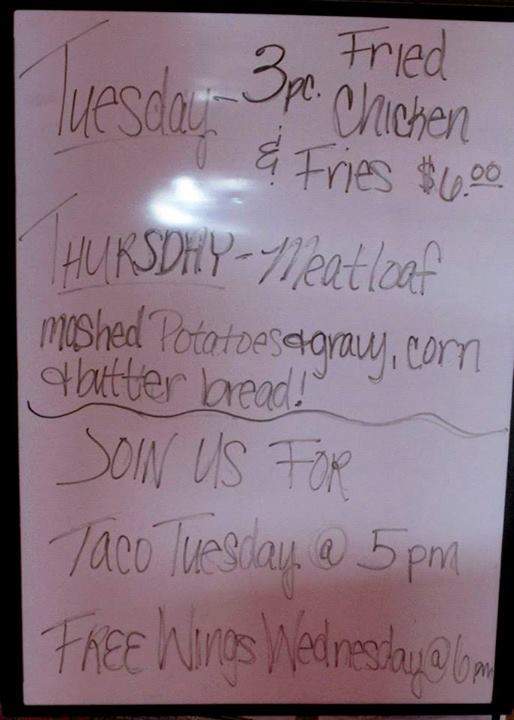 Tuesday - 3pc. Fried
Chicken
& Fries $6.00
THURSDAY - Meatloaf
mashed Potatoes & gravy, corn
& butter bread!
JOIN US FOR
Taco Tuesday @ 5pm
FREE Wings Wednesday @ 6pm